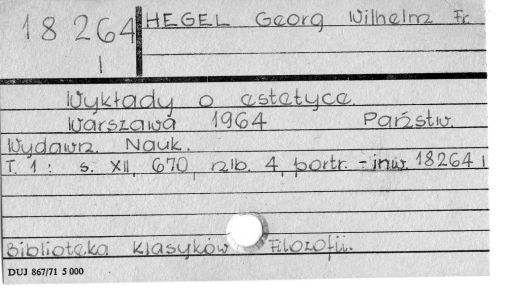 18 264 HEGEL Georg Wilhelm Fr.
I
Wykłady o estetyce.
Warszawa 1964 Państw.
Wydawn. Nauk.
T. 1 : s. XII, 670, nlb. 4, portr. - inw. 18264 I
Biblioteka Klasyków Filozofii.
DUJ 867/71 5 000